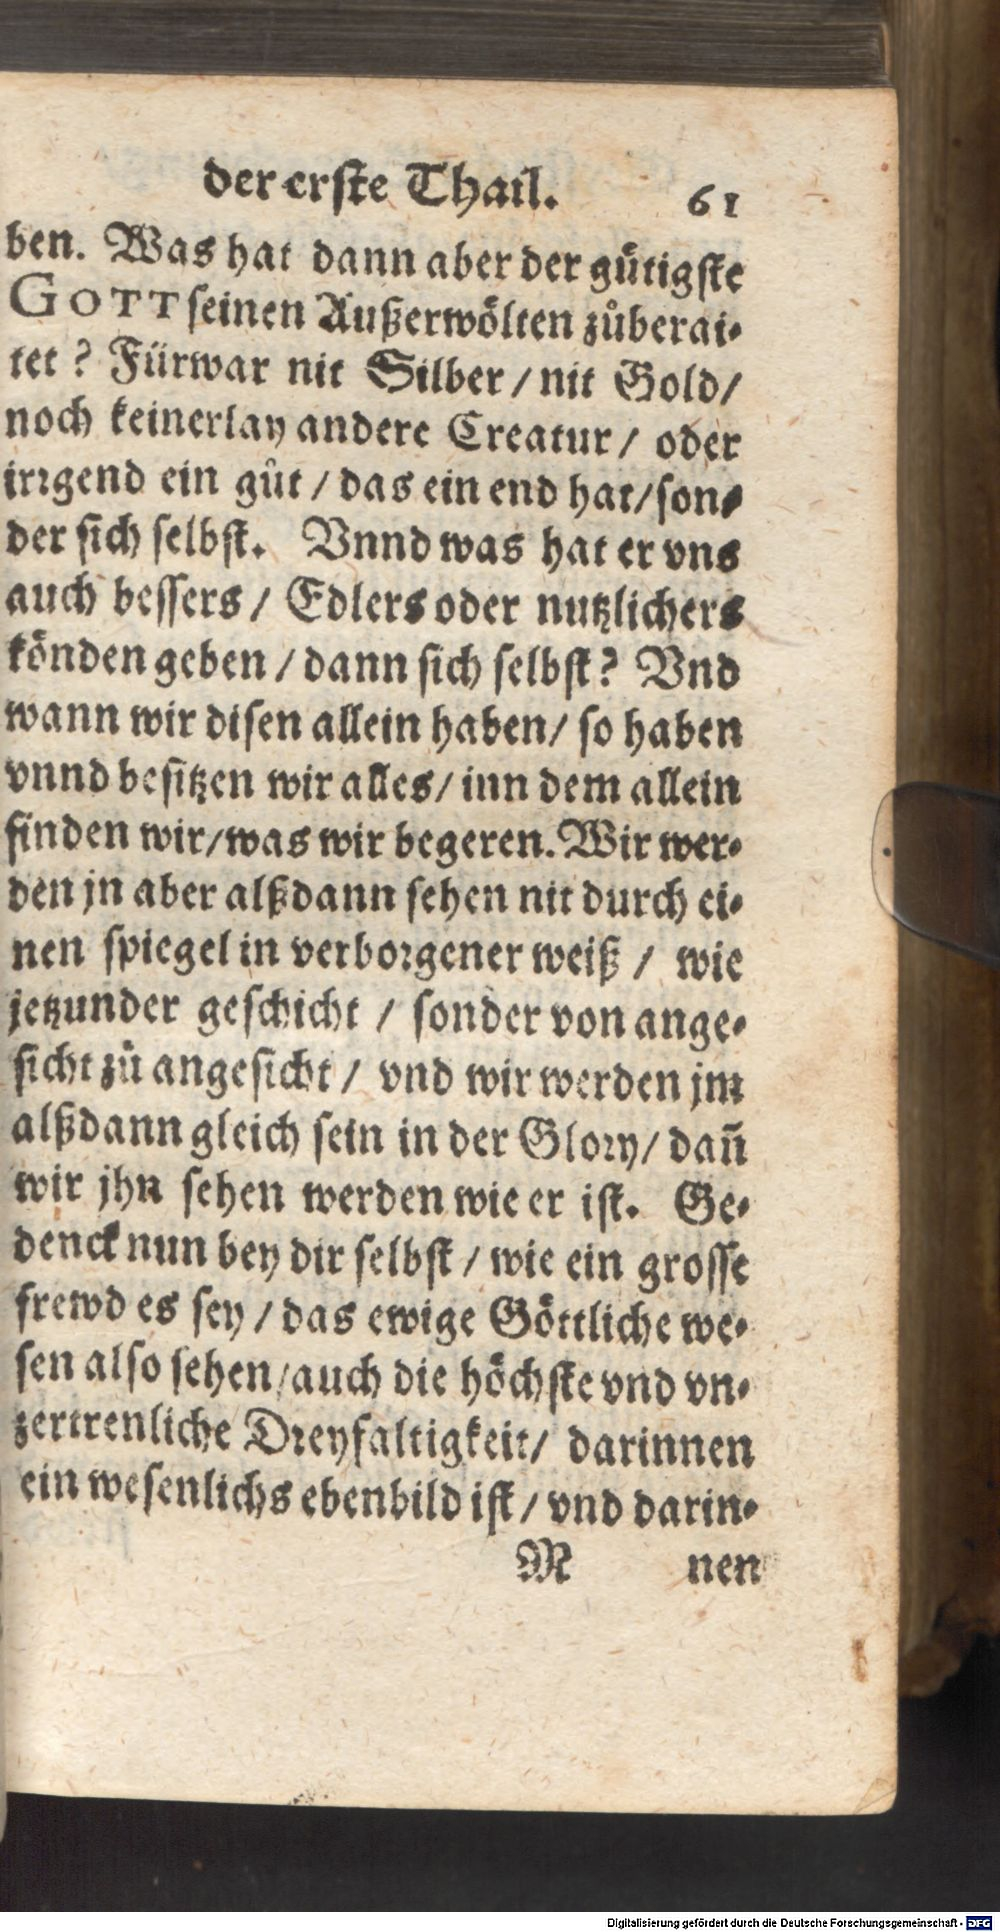 der erste Thail. 61
ben. Was hat dann aber der gůtigste
GOTT seinen Außerwölten zůberai-
tet? Fürwar nit Silber / nit Gold /
noch keinerlay andere Creatur / oder
irꝛgend ein gůt / das ein end hat / son-
der sich selbst. Vnnd was hat er vns
auch bessers / Edlers oder nutzlichers
könden geben / dann sich selbst? Vnd
wann wir disen allein haben / so haben
vnnd besitzen wir alles / inn dem allein
finden wir / was wir begeren. Wir wer-
den jn aber alßdann sehen nit durch ei-
nen spiegel in verboꝛgener weiß / wie
jetzunder geschicht / sonder von ange-
sicht zů angesicht / vnd wir werden jm
alßdann gleich sein in der Gloꝛy / dañ
wir jhn sehen werden wie er ist. Ge-
denck nun bey dir selbst / wie ein grosse
frewd es sey / das ewige Göttliche we-
sen also sehen / auch die höchste vnd vn-
zertrenliche Dꝛeyfaltigkeit / darinnen
ein wesenlichs ebenbild ist / vnd darin-
M nen
Digitalisierung gefördert durch die Deutsche Forschungsgemeinschaft - DFG